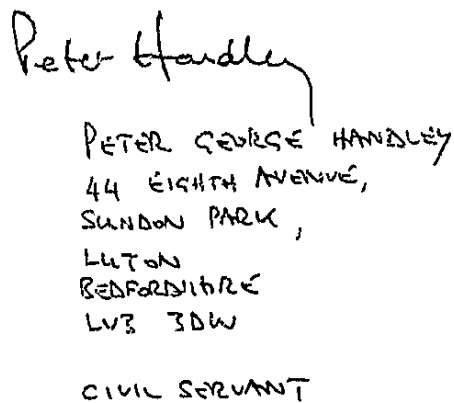 Peter Handley
PETER GEORGE HANDLEY
44 EIGHTH AVENUE,
SUNDON PARK,
LUTON
BEDFORDSHIRE
LU3 3DW
CIVIL SERVANT